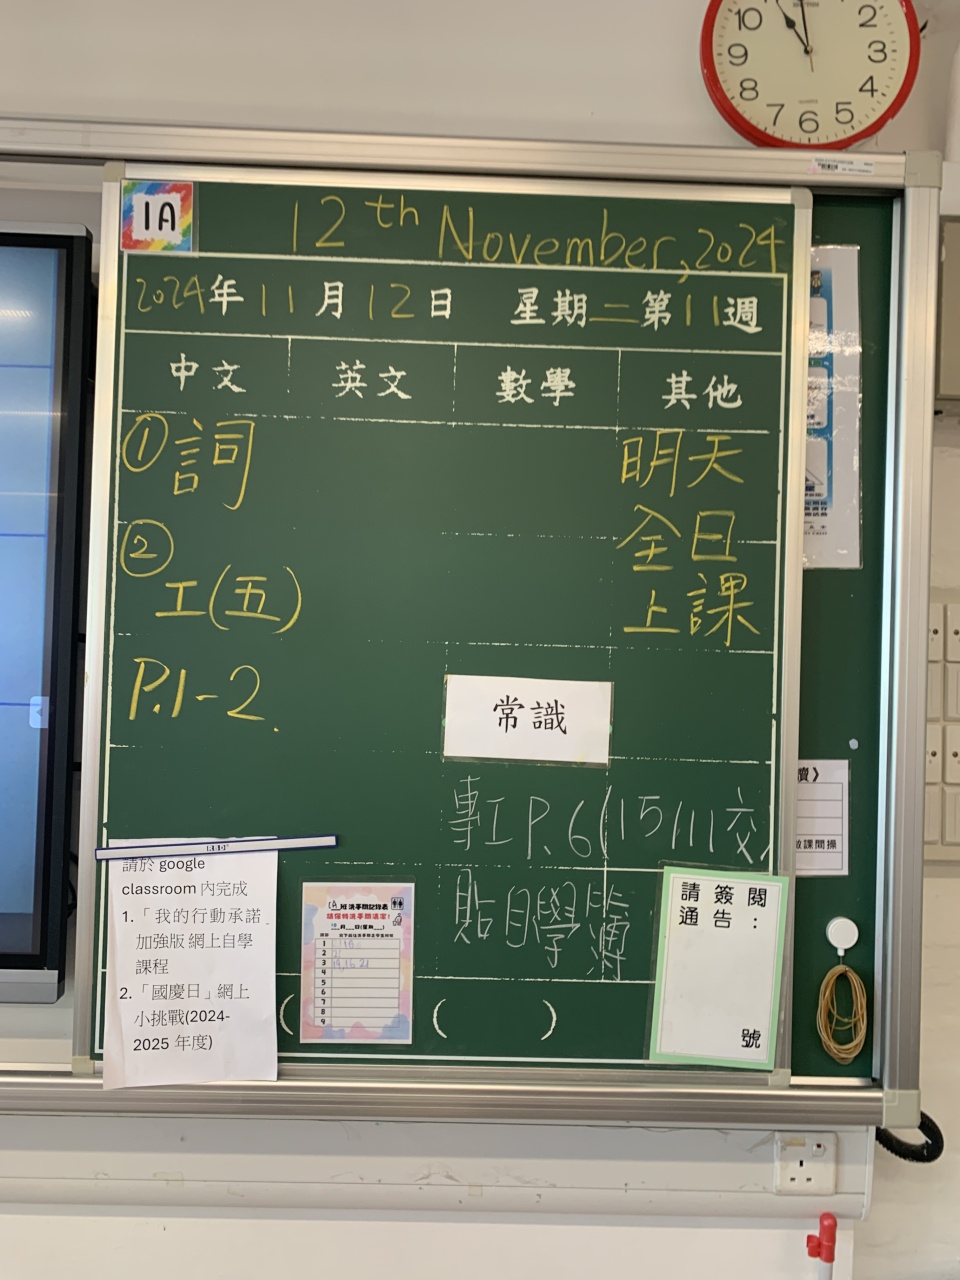 10
2
9
3
8
4
7
6
5
1A
12th November, 2024
2024年11月12日 星期二第11週
中文 英文 數學 其他
①詞
②
工(五)
P.1-2.
明天
全日
上課
常識
專工P.6(15/11交)
貼自學
請於 google
classroom 內完成
1.「我的行動承諾
加強版 網上自學
課程
2.「國慶日」網上
小挑戰(2024-
2025 年度)
(A)班洗手間記錄表
請保持洗手間清潔!
1
2
3
4
5
6
7
8
9
( ( )
請簽閱
通告:
號